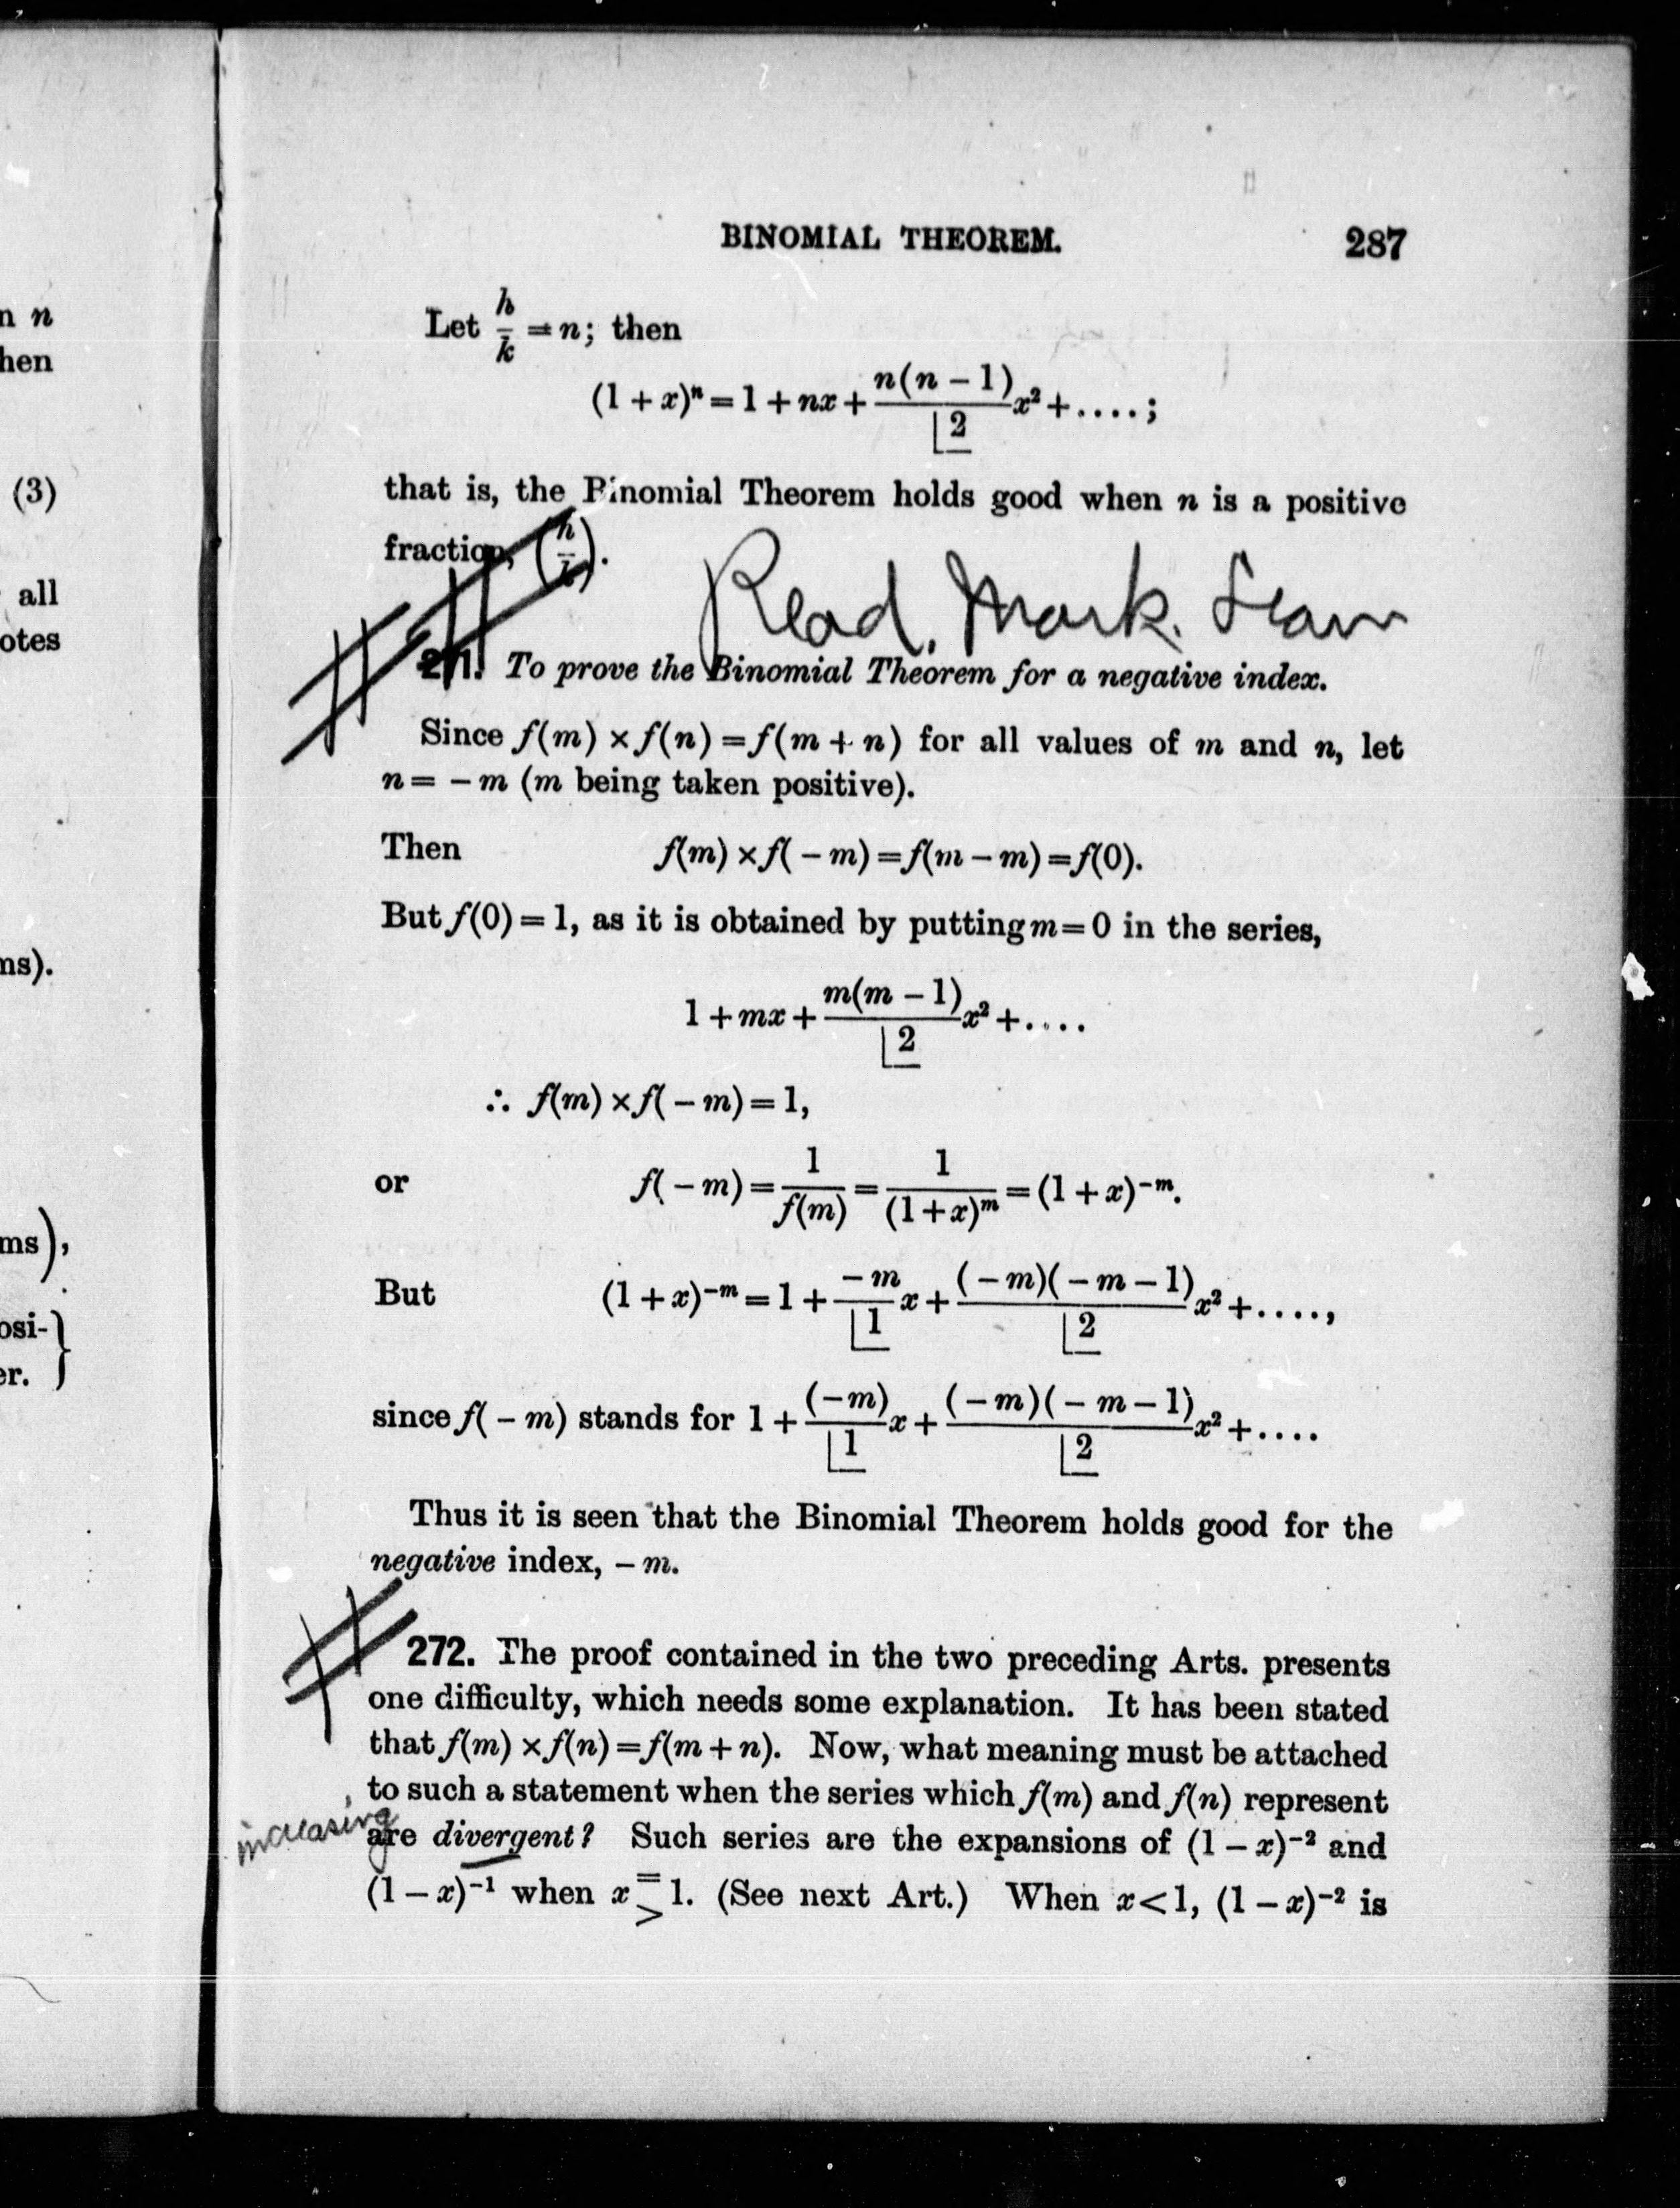 n n
hen
(3)
all
otes
ms).
ms),
osi-}
er.
BINOMIAL THEOREM. 287
Let h/k = n; then
(1 + x)ⁿ = 1 + nx + n(n − 1)/|2 x² + ....;
that is, the Binomial Theorem holds good when n is a positive
fraction, (h/k).
Read, Mark. Learn
271. To prove the Binomial Theorem for a negative index.
Since f(m) × f(n) = f(m + n) for all values of m and n, let
n = − m (m being taken positive).
Then f(m) × f( − m) = f(m − m) = f(0).
But f(0) = 1, as it is obtained by putting m = 0 in the series,
1 + mx + m(m − 1)/|2 x² + ....
∴ f(m) × f( − m) = 1,
or f( − m) = 1/f(m) = 1/(1 + x)ᵐ = (1 + x)⁻ᵐ.
But (1 + x)⁻ᵐ = 1 + − m/|1 x + ( − m)( − m − 1)/|2 x² + ....,
since f( − m) stands for 1 + (−m)/|1 x + ( − m)( − m − 1)/|2 x² + ....
Thus it is seen that the Binomial Theorem holds good for the
negative index, − m.
272. The proof contained in the two preceding Arts. presents
one difficulty, which needs some explanation. It has been stated
that f(m) × f(n) = f(m + n). Now, what meaning must be attached
to such a statement when the series which f(m) and f(n) represent
increasing
are divergent? Such series are the expansions of (1 − x)⁻² and
(1 − x)⁻¹ when x => 1. (See next Art.) When x < 1, (1 − x)⁻² is